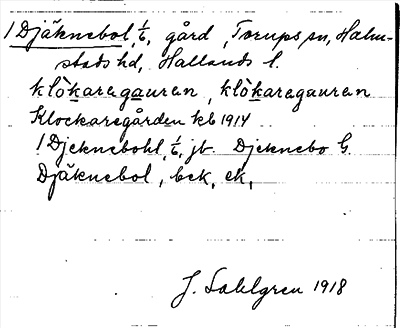 1 Djäknebol, 1/6, gård, Torups sn, Halm-
stads hd, Hallands l.
klòkaragauran, klòkaragauran
Klockaregården kb 1914
1 Djeknebohl, 1/6, jb. Djeknebo G.
Djäknebol, bek, ek,
J. Sahlgren 1918